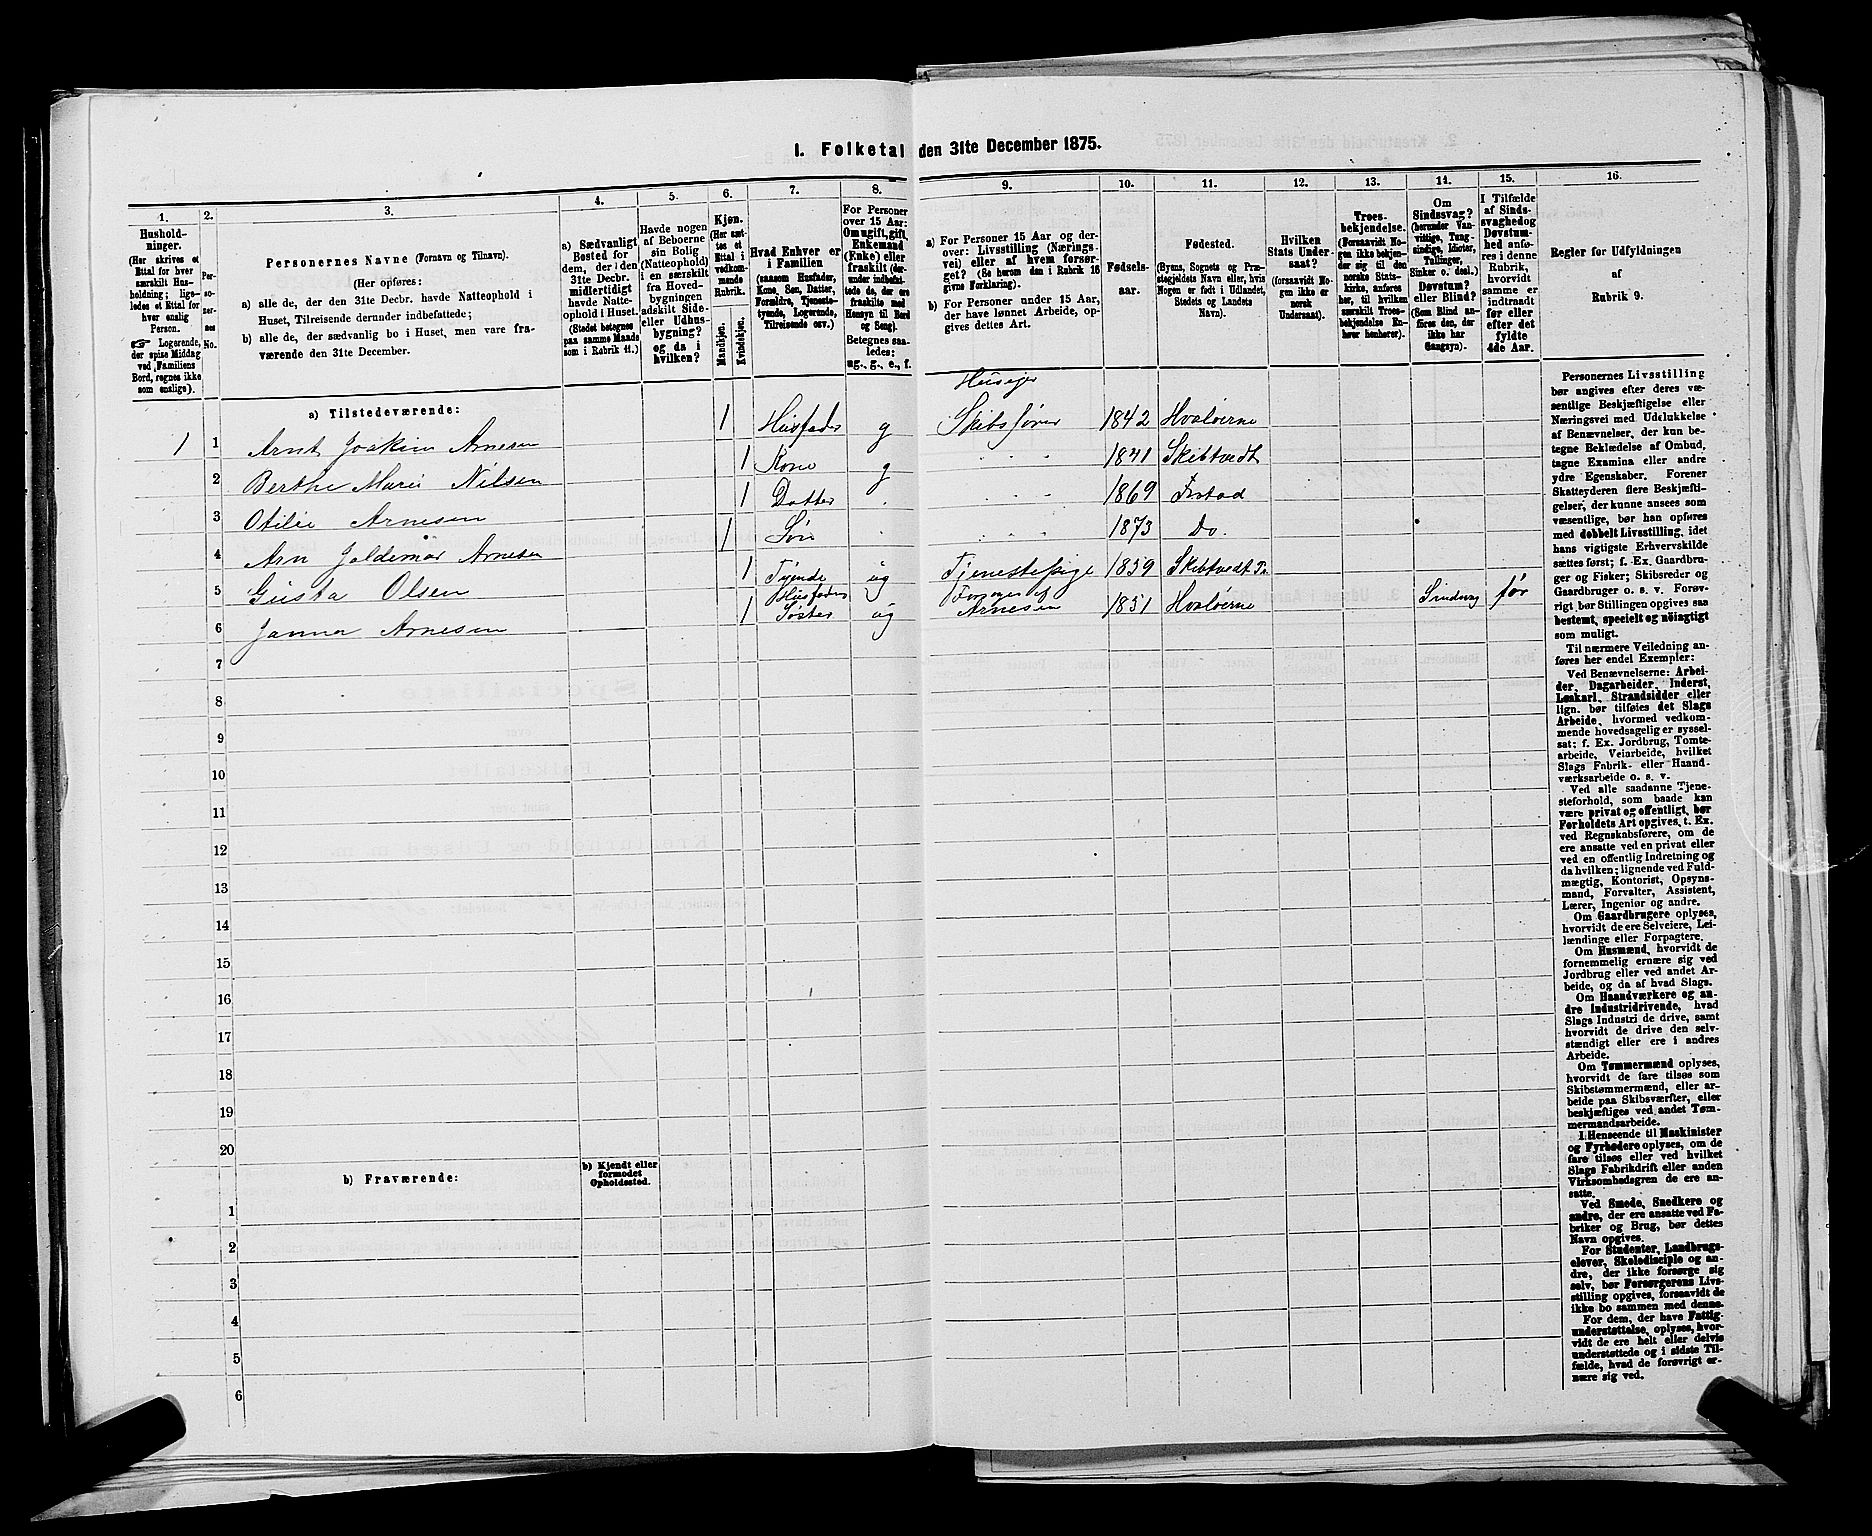 1. Folketal den 31te December 1875.
1.
Hushold-
ninger.
(Her skrives et
Ettal for hver
særskilt Hus-
holdning; lige-
ledes et Ettal for
hver enslig
Person.
☞ Logerende,
der spise Middag
ved Familiens
Bord, regnes ikke
som enslige).
2.
Per-
so-
ner-
nes
No.
3.
Personernes Navne (Fornavn og Tilnavn).
(Her opføres:
a) alle de, der den 31te Decbr. havde Natteophold i
Huset, Tilreisende derunder indbefattede;
b) alle de, der sædvanlig bo i Huset, men vare fra-
værende den 31te December.
4.
a) Sædvanligt
Bosted for
dem, der i den
31te Decbr.
midlertidigt
havde Natte-
ophold i Huset.
(Stedet betegnes
paa samme Maade
som i Rubrik 11.)
5.
Havde nogen
af Beboerne
sin Bolig
(Natteophold)
i en særskilt
fra Hoved-
bygningen
adskilt Side-
eller Udhus-
bygning?
og da i
hvilken?
6.
Kjøn.
(Her sæt-
tes et
Ettal i
vedkom-
mende
Rubrik.
Mandkjøn.
Kvindekjøn.
7.
Hvad Enhver er
i Familien
(saasom Husfader,
Kone, Søn, Datter,
Forældre, Tjeneste-
tyende, Logerende,
Tilreisende osv.)
8.
For Personer
over 15 Aar:
Om ugift, gift,
Enkemand
(Enke) eller
fraskilt (der-
under indbefat-
tede de, der ere
fraskilte med
Hensyn til Bord
og Seng).
Betegnes saa-
ledes:
ug., g., e., f.
9.
a) For Personer 15 Aar og der-
over: Livsstilling (Nærings-
vei) eller af hvem forsør-
get? (Se herom den i Rubrik 16
givne Forklaring).
b) For Personer under 15 Aar,
der have lønnet Arbeide, op-
gives dettes Art.
10.
Fødsels-
aar.
11.
Fødested.
(Byens, Sognets og Præ-
stegjeldets Navn eller, hvis
Nogen er født i Udlandet,
Stedets og Landets
Navn).
12.
Hvilken
Stats Under-
saat?
(forsaavidt No-
gen ikke er
norsk
Undersaat).
13.
Troes-
bekjendelse.
(Forsaavidt No-
gen ikke bekjen-
der sig til den
norske Stats-
kirke, anføres
her, til hvilken
særskilt Troes-
bekjendelse En-
hver henhører).
14.
Om
Sindssvag?
(herunder Van-
vittige, Tung-
sindige, Idioter,
Tullinger,
Sinker o. desl.)
Døvstum?
eller Blind?
(Som Blind an-
føres den, der
ikke har
Gangsyn).
15.
I Tilfælde
af Sinds-
svaghed og
Døvstum-
hed anfø-
res i denne
Rubrik,
hvorvidt
samme er
indtraadt
før eller
efter det
fyldte
4de Aar.
16.
Regler for Udfyldningen
af
Rubrik 9.
a) Tilstedeværende:
Husejer
1 1 Arnt Joakim Arnesen 1 Husfader g Skibsfører 1842 Hvaløerne
2 Berthe Marie Nilsen 1 Kone g 1841 Skibtvedt
3 Otilie Arnesen 1 Datter 1869
4 Arn Arnesen 1 Søn 1873 Do.
5 Gusta Olsen 1 Tyende ug Tjenestepige 1859 Skibtvedt
6 Arnesen 1 Husfaders Søster ug Arnesen 1851 Hvaløerne før
7
8
9
10
11
12
13
14
15
16
17
18
19
20
b) Fraværende:
b) Kjendt eller
formodet
Opholdssted.
1
2
3
4
5
6
Personernes Livsstilling
bør angives efter deres væ-
sentlige Beskjæftigelse eller
Næringsvei med Udelukkelse
af Benævnelser, der kun be-
tegne Beklædelse af Ombud,
tagne Examina eller andre
ydre Egenskaber. Forener
Skatteyderen flere Beskjæfti-
gelser, der kunne ansees som
væsentlige, bør han opføres
med dobbelt Livsstilling, idet
hans vigtigste Erhvervskilde
sættes først; f. Ex. Gaardbru-
ger og Fisker; Skibsreder og
Gaardbruger o. s. v. Forøv-
rigt bør Stillingen opgives saa
bestemt, specielt og nøiagtigt
som muligt.
Til nærmere Veiledning an-
føres her endel Exempler:
Ved Benævnelserne: Arbei-
der, Dagarbeider, Inderst,
Løskarl, Strandsidder eller
lign. bør tilføies det Slags
Arbeide, hvormed vedkom-
mende hovedsagelig er syssel-
sat; f. Ex. Jordbrug, Tomte-
arbeide, Veiarbeide, hvilket
Slags Fabrik- eller Haand-
værksarbeide o. s. v.
Ved alle saadanne Tjene-
steforhold, som baade kan
være privat og offentligt, bør
Forholdets Art opgives, t. Ex.
ved Regnskabsførere, om de
ere ansatte ved en privat eller
ved en offentlig Indretning og
da hvilken; lignende ved Fuld-
mægtig, Kontorist, Opsyns-
mand, Forvalter, Assistent,
Lærer, Ingeniør og andre.
Om Gaardbrugere oplyses,
hvorvidt de ere Selveiere, Lei-
lændinge eller Forpagtere.
Om Husmænd, hvorvidt de
fornemmelig ernære sig ved
Jordbrug eller ved andet Ar-
beide, og da af hvad Slags.
Om Haandværkere og an-
dre Industridrivende, hvad
Slags Industri de drive, samt
hvorvidt de drive den selv-
stændigt eller ere i andres
Arbeide.
Om Tømmermænd oplyses,
hvorvidt de fare tilsøs som
Skibstømmermænd, eller ar-
beide paa Skibsværfter, eller
beskjæftiges ved andet Tøm-
mermandsarbeide.
I Henseende til Maskinister
og Fyrbødere oplyses, om de
fare tilsøs eller ved hvilket
Slags Fabrikdrift eller anden
Virksomhedsgren de ere an-
satte.
Ved Smede, Snedkere og
andre, der ere ansatte ved Fa-
briker og Brug, bør dettes
Navn opgives.
For Studenter, Landbrugs-
elever, Skoledisciple og an-
dre, der ikke forsørge sig
selv, bør Forsørgerens Livs-
stilling opgives, forsaavidt de
ikke bo sammen med denne.
For dem, der have Fattig-
understøttelse, oplyses, hvor-
vidt de ere helt eller delvis
understøttede og i sidste Til-
fælde, hvad de forøvrigt er-
nære sig ved.